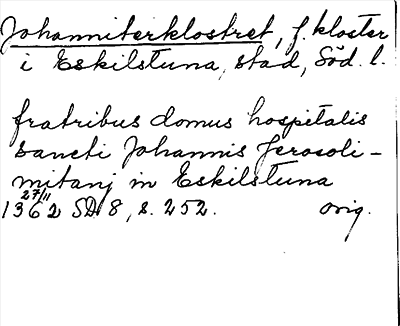 Johanniterklostret, f. kloster
i Eskilstuna, stad, Söd. l.
fratribus domus hospitalis
sancti Johannis Jerosoli-
mitanj in Eskilstuna
27/11
1362 SD 8, s. 252. orig.